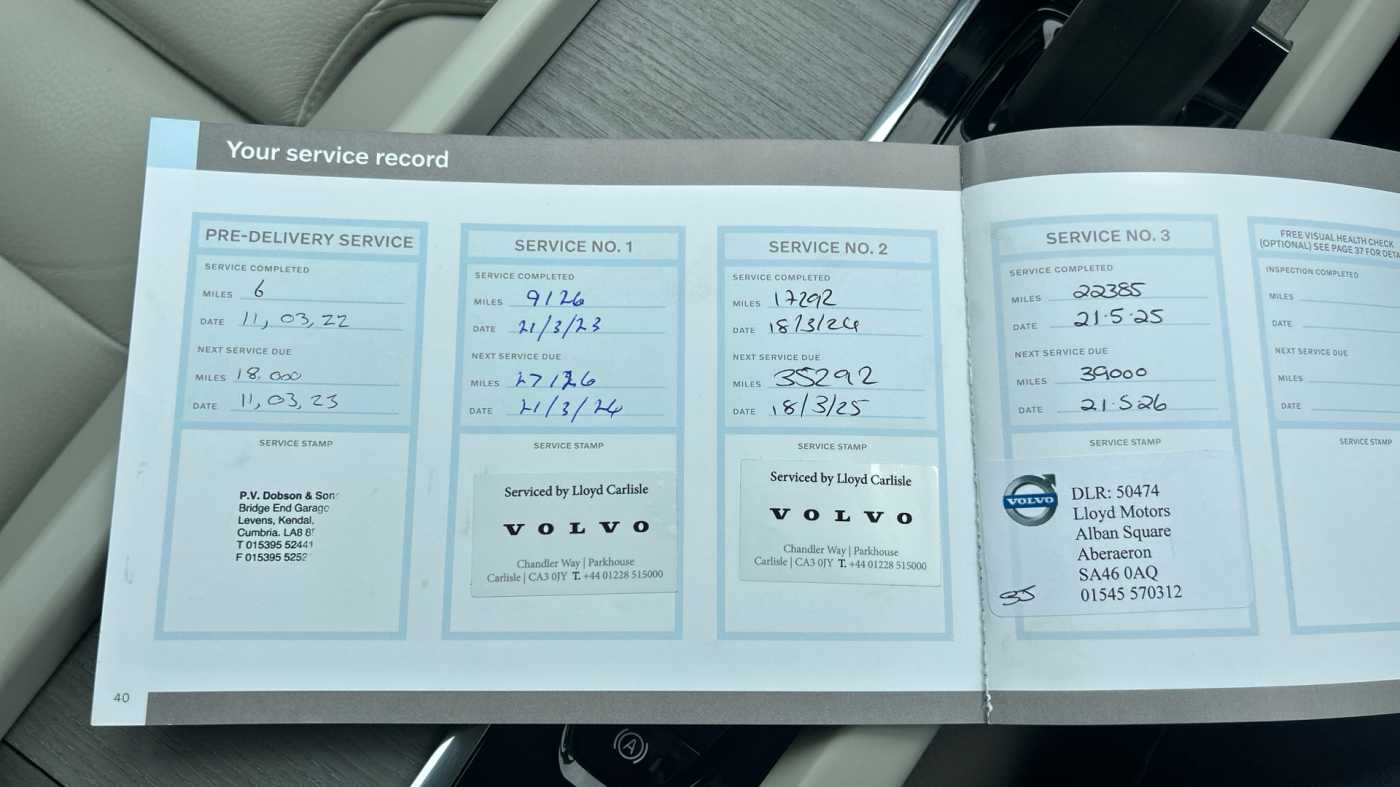 Your service record
PRE-DELIVERY SERVICE
SERVICE COMPLETED
MILES 6
DATE 11, 03, 22
NEXT SERVICE DUE
MILES 18.000
DATE 11, 03, 23
SERVICE STAMP
P.V. Dobson & Sons
Bridge End Garage
Levens, Kendal,
Cumbria. LA8
T 015395 52441
F 015395 5252
SERVICE NO. 1
SERVICE COMPLETED
MILES 9126
DATE 21/3/23
NEXT SERVICE DUE
MILES 27126
DATE 21/3/24
SERVICE STAMP
Serviced by Lloyd Carlisle
VOLVO
Chandler Way | Parkhouse
Carlisle | CA3 0JY T. +44 01228 515000
SERVICE NO. 2
SERVICE COMPLETED
MILES 17292
DATE 18/3/24
NEXT SERVICE DUE
MILES 35292
DATE 18/3/25
SERVICE STAMP
Serviced by Lloyd Carlisle
VOLVO
Chandler Way | Parkhouse
Carlisle | CA3 0JY T. +44 01228 515000
SERVICE NO. 3
SERVICE COMPLETED
MILES 22385
DATE 21.5.25
NEXT SERVICE DUE
MILES 39000
DATE 21.5.26
SERVICE STAMP
VOLVO
DLR: 50474
Lloyd Motors
Alban Square
Aberaeron
SA46 0AQ
01545 570312
FREE VISUAL HEALTH CHECK
(OPTIONAL) SEE PAGE 37 FOR
INSPECTION COMPLETED
MILES
DATE
NEXT SERVICE DUE
MILES
DATE
SERVICE STAMP
40
A